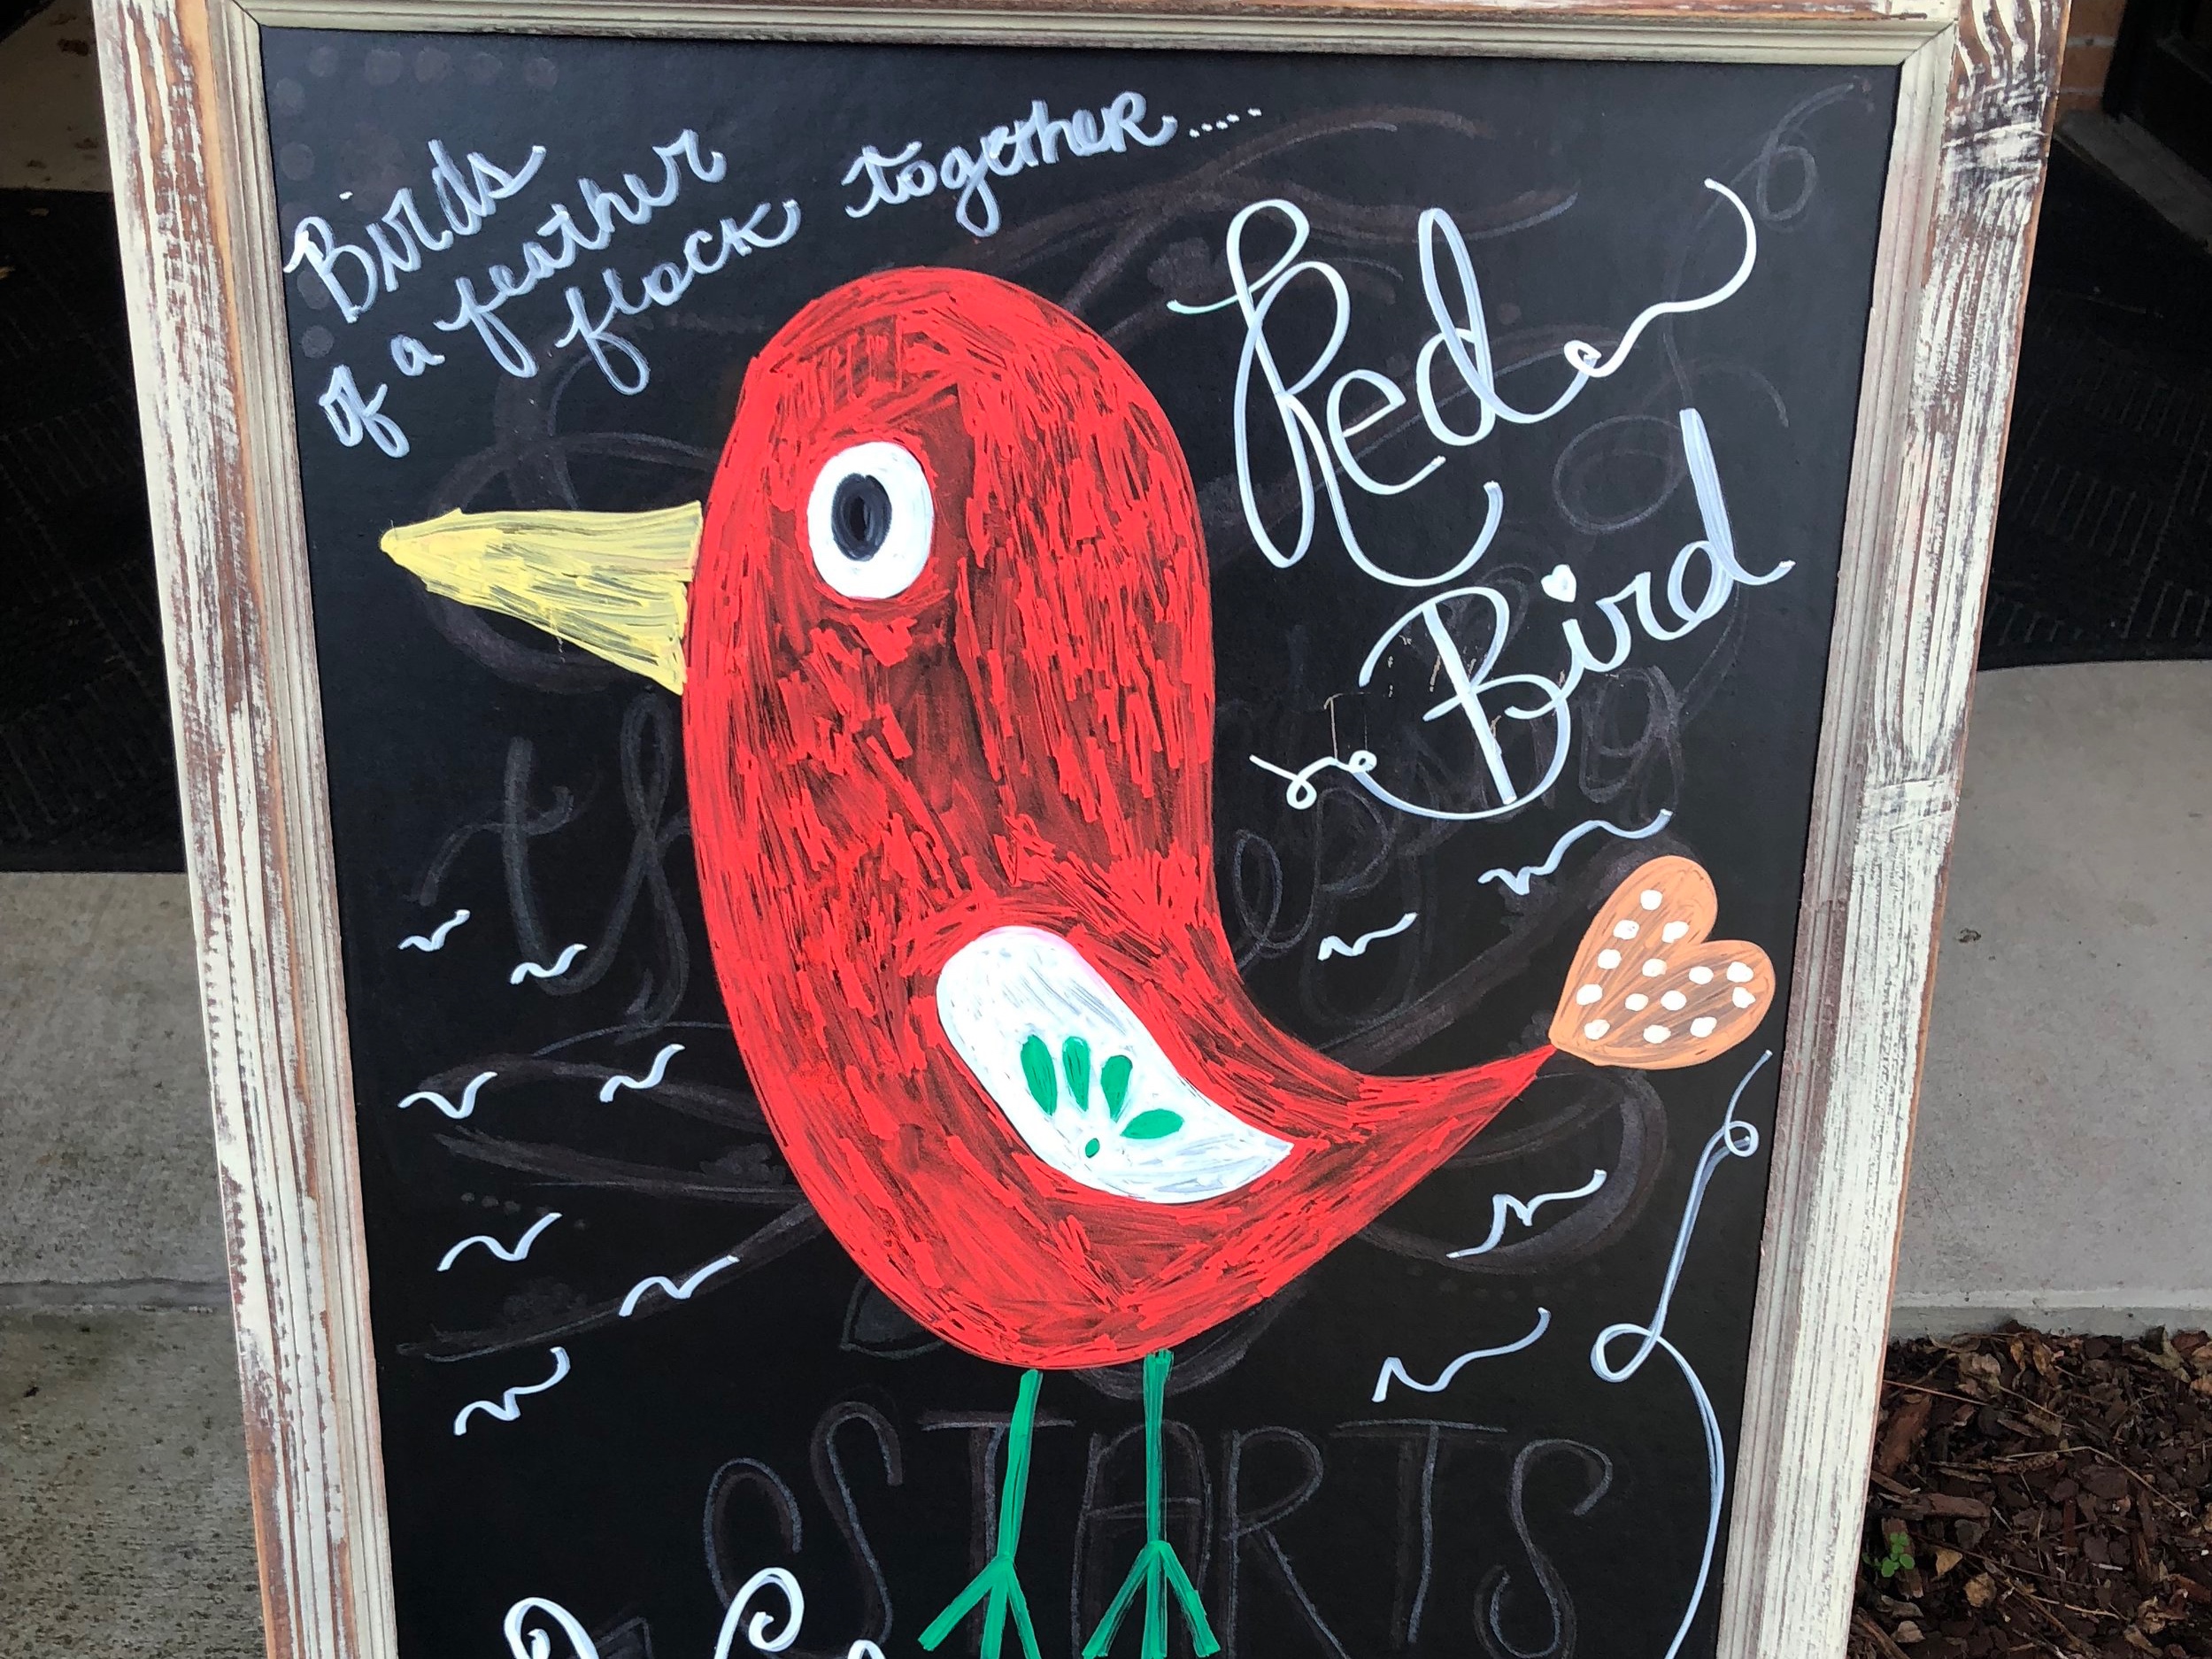 Birds
of a feather
flock together.....
Red
Bird
STARTS